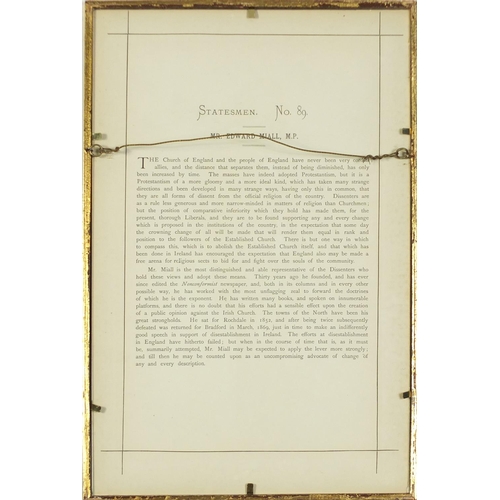 STATESMEN. No. 89.
MR. EDWARD MIALL, M.P.
THE Church of England and the people of England have never been very cordial
allies, and the distance that separates them, instead of being diminished, has only
been increased by time. The masses have indeed adopted Protestantism, but it is a
Protestantism of a more gloomy and a more ideal kind, which has taken many strange
directions and been developed in many strange ways, having only this in common, that
they are all forms of dissent from the official religion of the country. Dissenters are
as a rule less generous and more narrow-minded in matters of religion than Churchmen;
but the position of comparative inferiority which they hold has made them, for the
present, thorough Liberals, and they are to be found supporting any and every change
which is proposed in the institutions of the country, in the expectation that some day
the crowning change of all will be made that will render them equal in rank and
position to the followers of the Established Church. There is but one way in which
to compass this, which is to abolish the Established Church itself, and that which has
been done in Ireland has encouraged the expectation that England also may be made a
free arena for religious sects to bid for and fight over the souls of the community.
Mr. Miall is the most distinguished and able representative of the Dissenters who
hold these views and adopt those means. Thirty years ago he founded, and has ever
since edited the Nonconformist newspaper, and, both in its columns and in every other
possible way, he has worked with the most unflagging zeal to forward the doctrines
of which he is the exponent. He has written many books, and spoken on innumerable
platforms, and there is no doubt that his efforts had a sensible effect upon the creation
of a public opinion against the Irish Church. The towns of the North have been his
great strongholds. He sat for Rochdale in 1852, and after being twice subsequently
defeated was returned for Bradford in March, 1869, just in time to make an indifferently
good speech in support of disestablishment in Ireland. The efforts at disestablishment
in England have hitherto failed; but when in the course of time that is, as it must
be, summarily attempted, Mr. Miall may be expected to apply the lever more strongly;
and till then he may be counted upon as an uncompromising advocate of change of
any and every description.